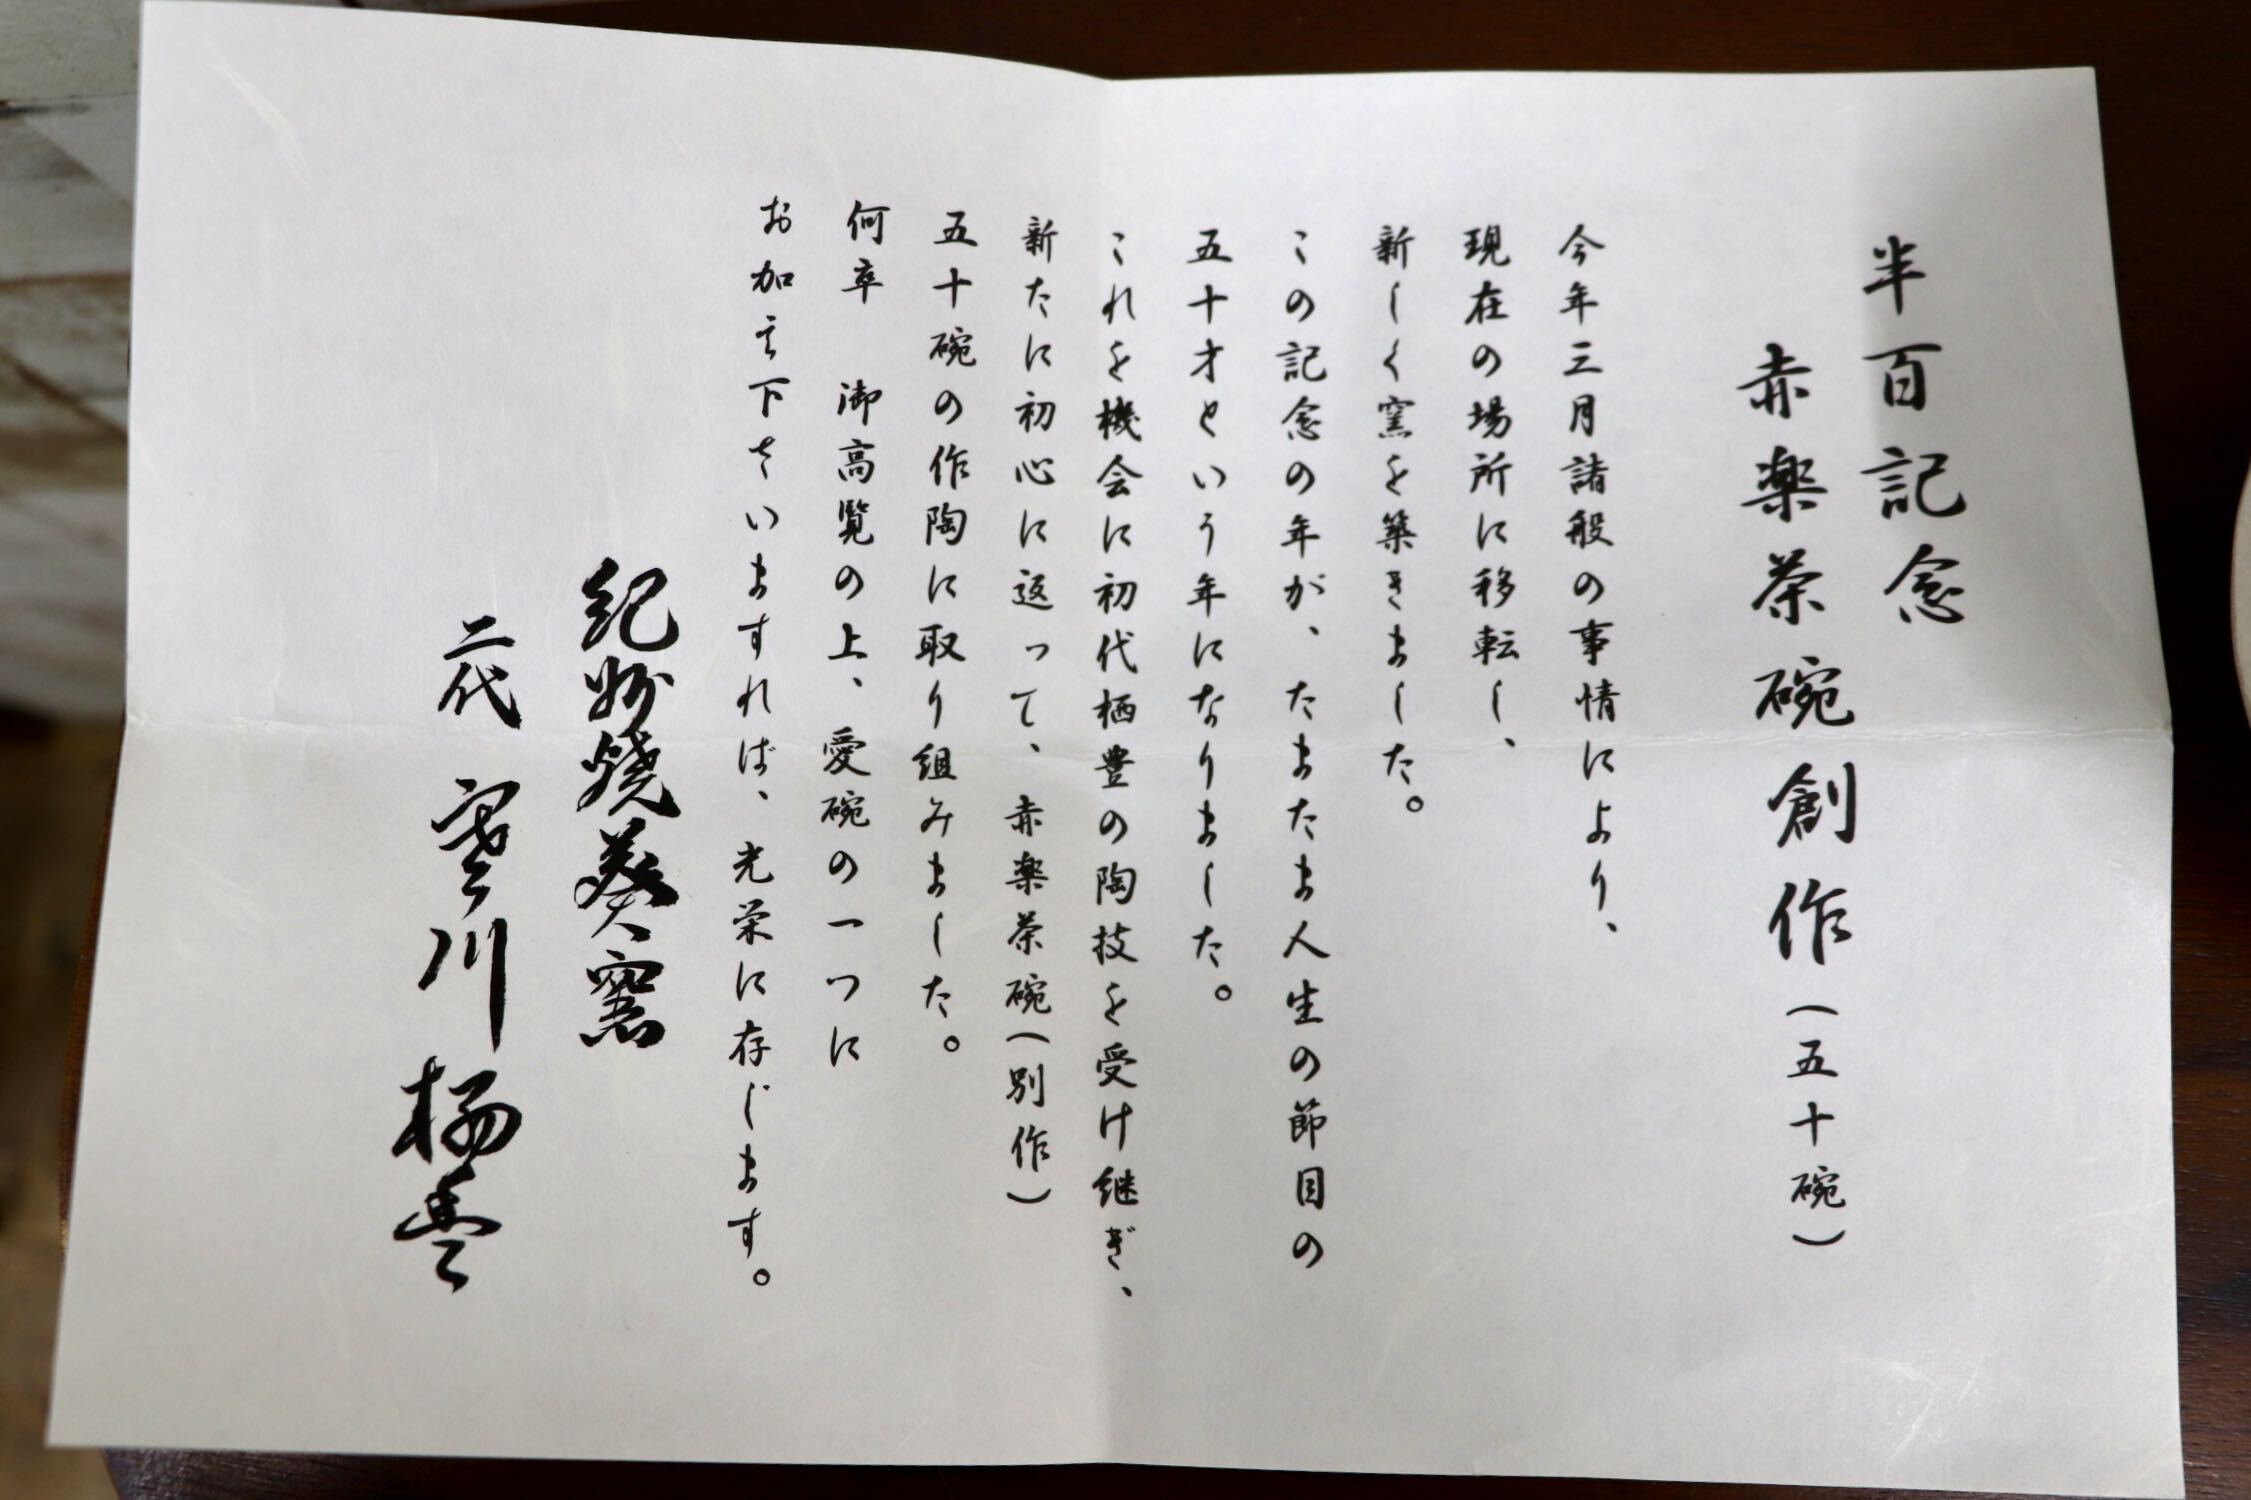 半百記念
赤楽茶碗創作（五十碗）
今年三月諸般の事情により、
現在の場所に移転し、
新しく窯を築きました。
この記念の年が、たまたま人生の節目の
五十才という年になりました。
これを機会に初代栖豊の陶技を受け継ぎ、
新たに初心に返って、赤楽茶碗（別作）
五十碗の作陶に取り組みました。
何卒　御高覧の上、愛碗の一つに
お加え下さいますれば、光栄に存じます。
紀州焼葵窯
二代　寒川栖豊